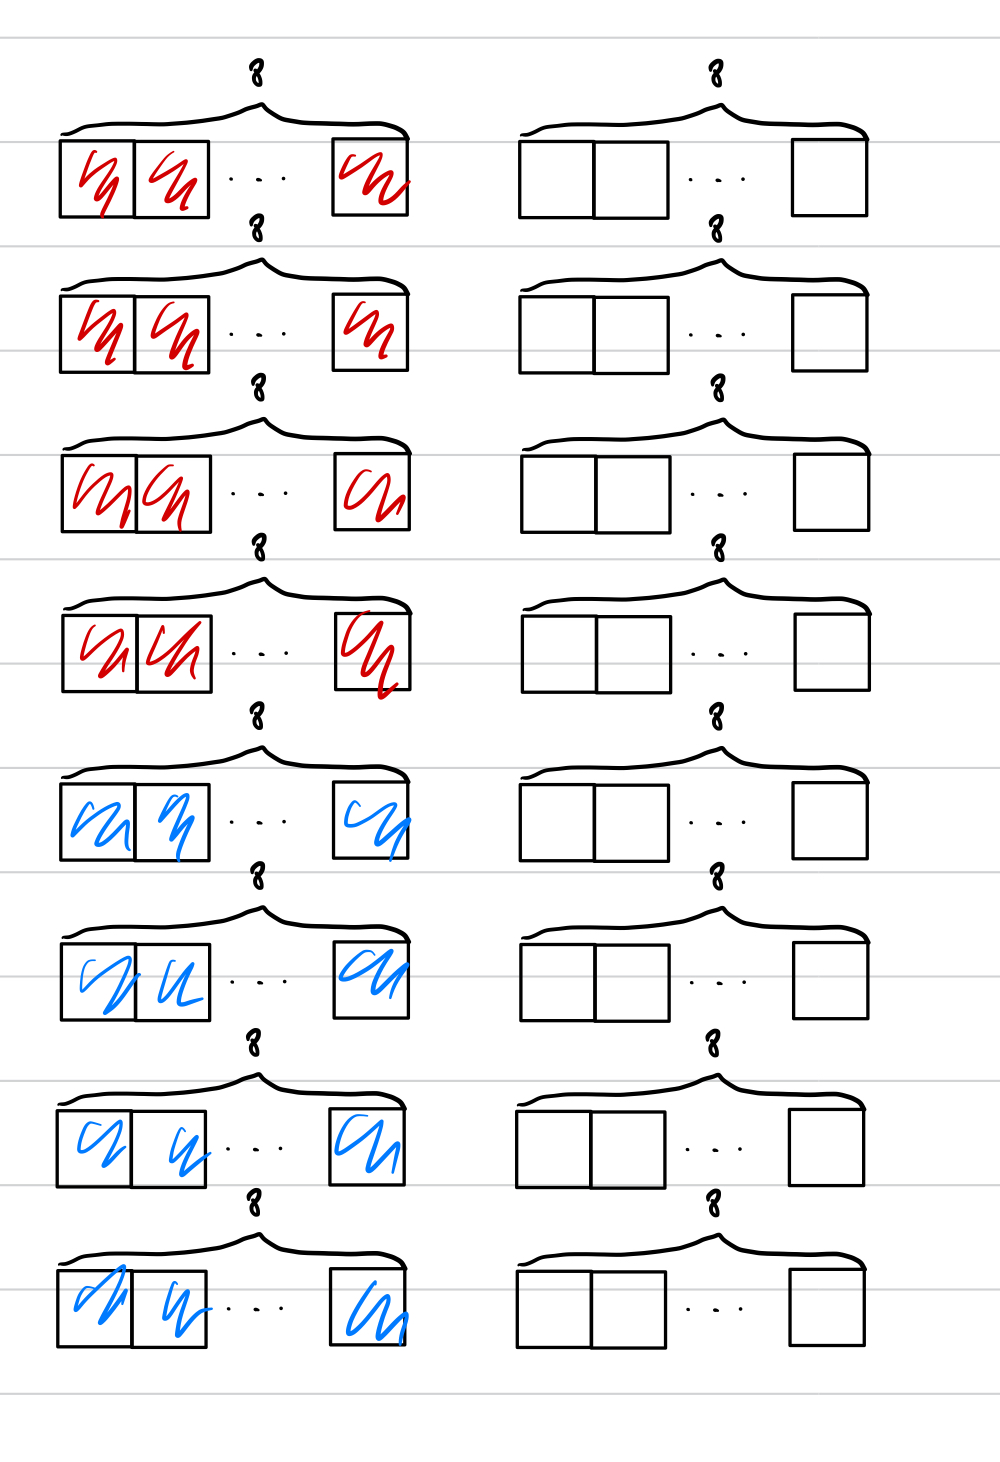 8 8
. . . . . .
8 8
. . . . . .
8 8
. . . . . .
8 8
. . . . . .
8 8
. . . . . .
8 8
. . . . . .
8 8
. . . . . .
8 8
. . . . . .